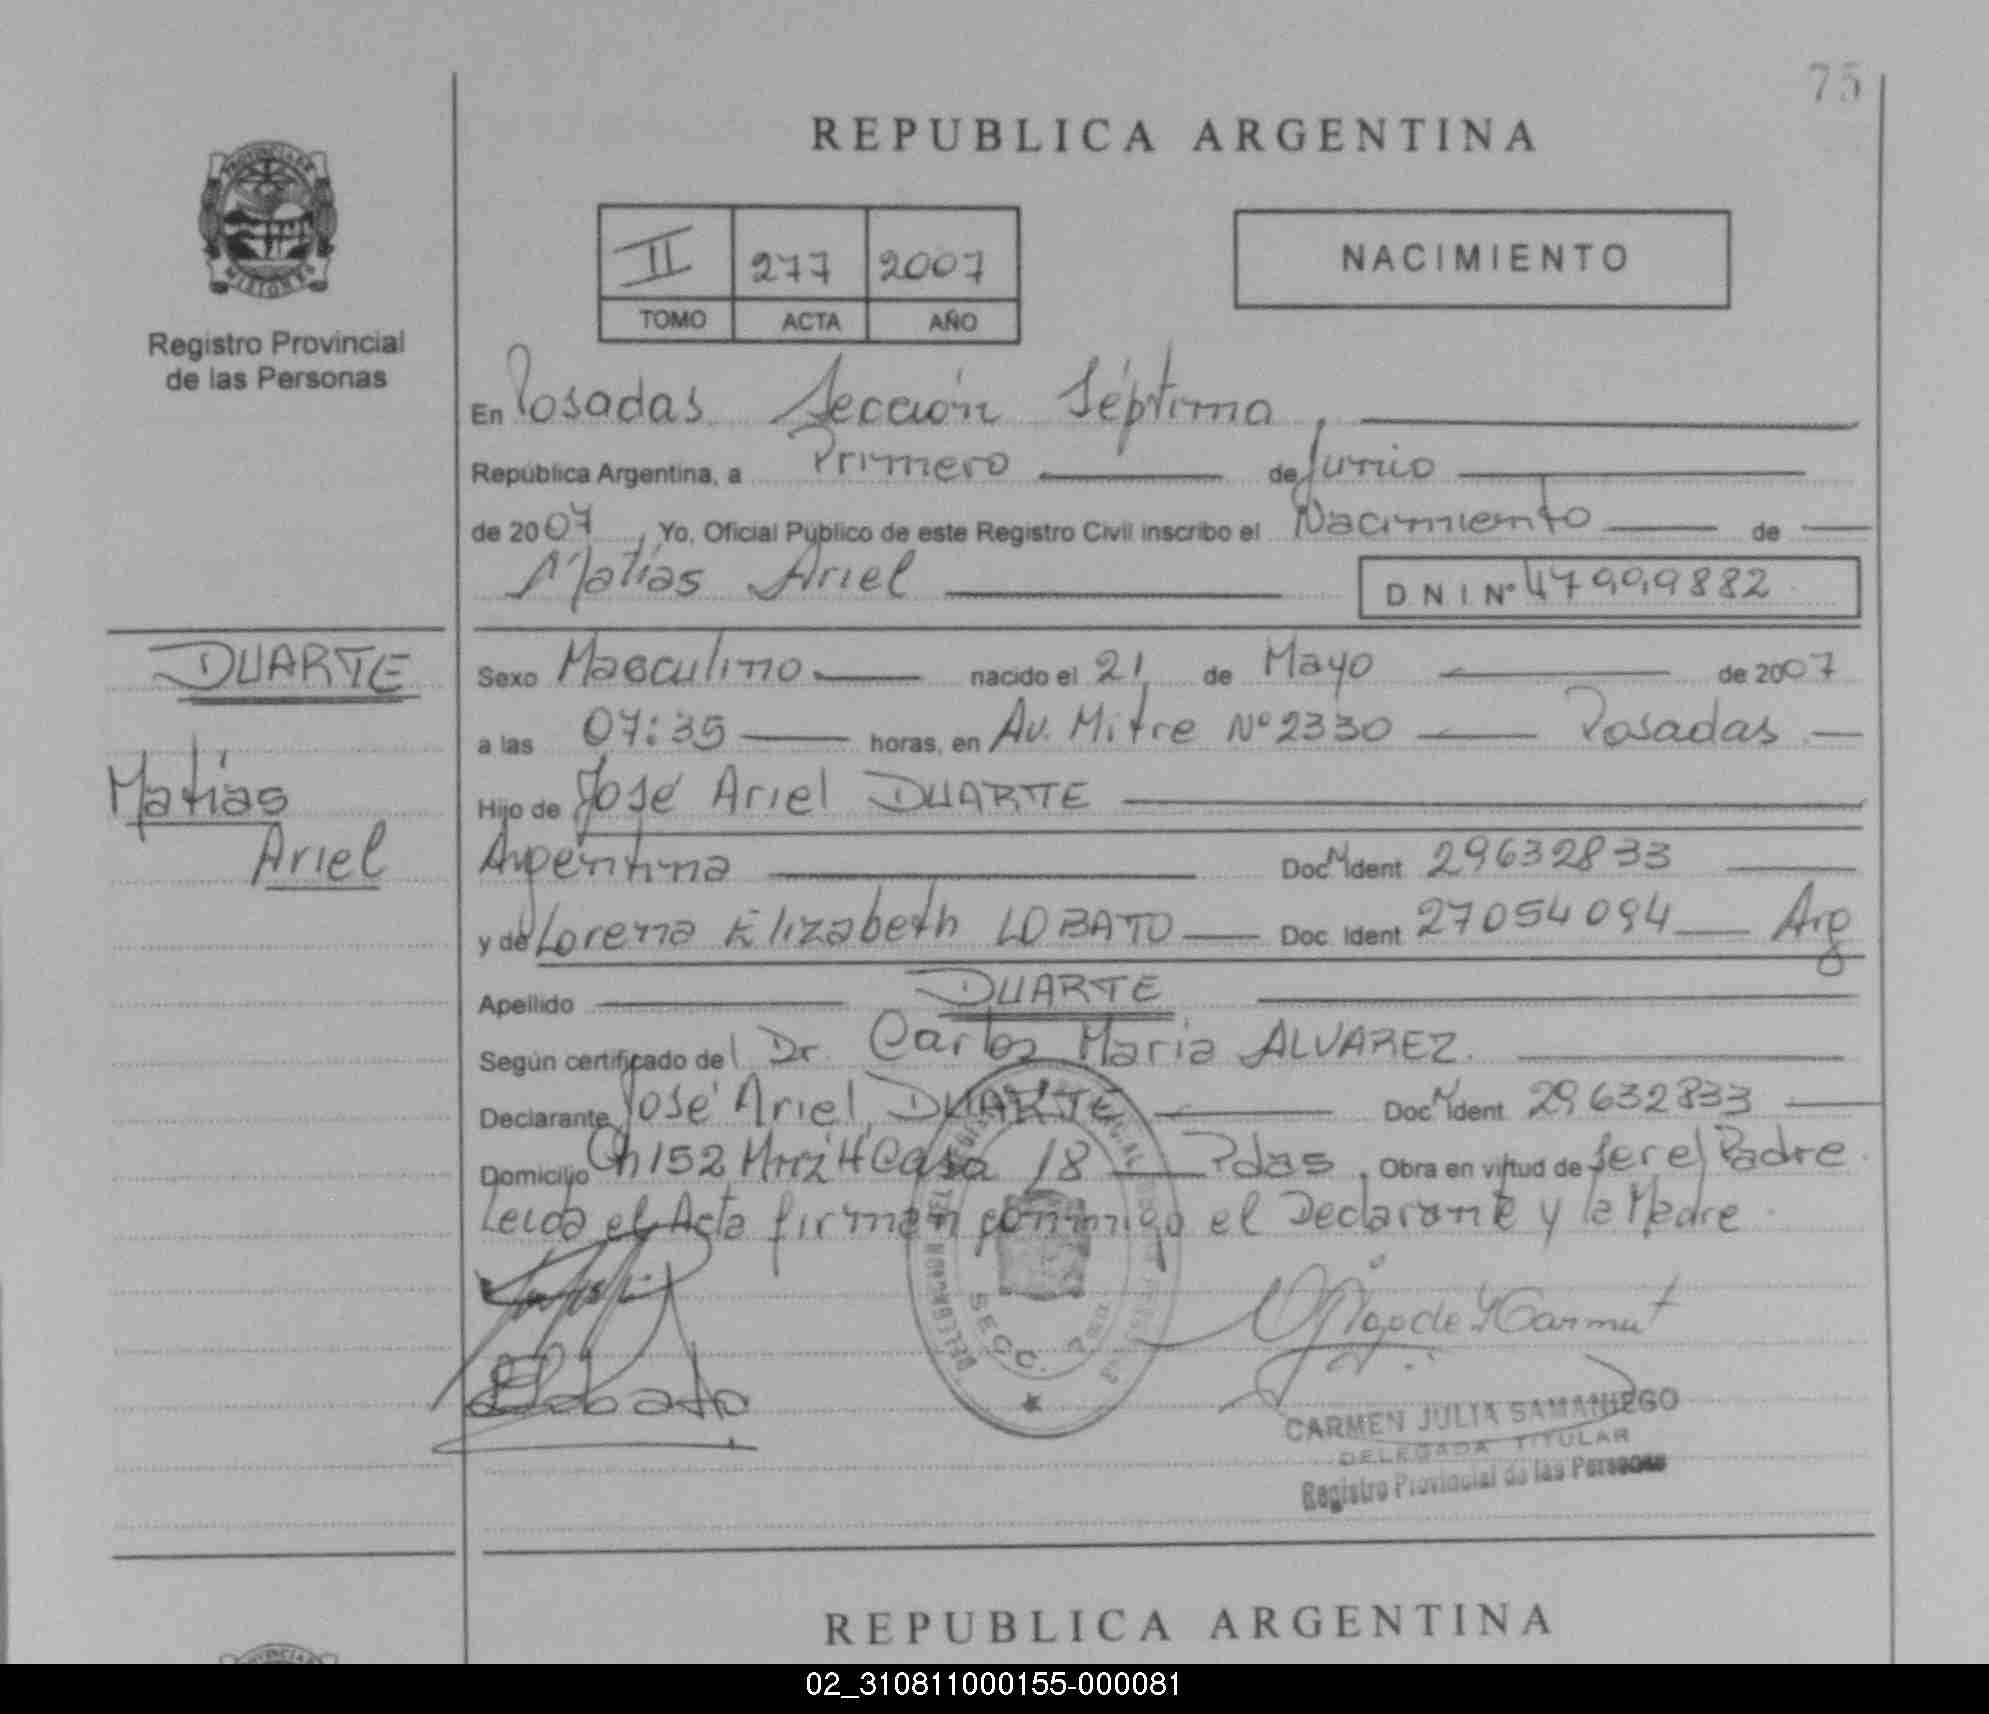 75
REPUBLICA ARGENTINA
PROVINCIA DE
MISIONES
Registro Provincial
de las Personas
II 277 2007
TOMO ACTA AÑO
NACIMIENTO
En Posadas Sección Séptima,
República Argentina, a Primero de Junio
de 2007, Yo, Oficial Público de este Registro Civil inscribo el Nacimiento de
Matías Ariel DNI Nº 47.909.882
DUARTE
Matías
Ariel
Sexo Masculino nacido el 21 de Mayo de 2007
a las 07:35 horas, en Av. Mitre Nº 2330 Posadas
Hijo de José Ariel DUARTE
Argentina Doc. Ident 29632833
y de Lorena Elizabeth LOBATO Doc. Ident 27054094 Arg
Apellido DUARTE
Según certificado del Dr. Carlos María ALVAREZ.
Declarante José Ariel DUARTE Doc. Ident 29632833
Domicilio Ch 152 Mnz H Casa 18 Pdas, Obra en virtud de ser el Padre.
Leida el Acta firman conmigo el Declarante y la Madre.
SECC. 7
Lobato
CARMEN JULIA SAMANIEGO
DELEGADA TITULAR
Registro Provincial de las Personas
REPUBLICA ARGENTINA
02_310811000155-000081